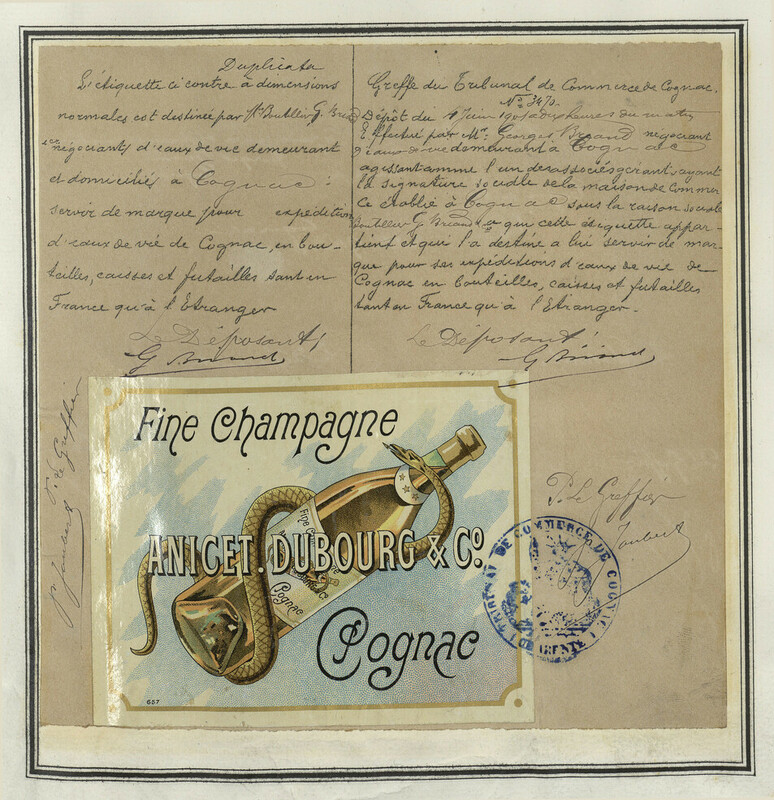 Duplicata
L'étiquette ci contre à dimensions
normales est destinée par Mrs Boutillier G. Briand
& Co négociants d'eaux de vie demeurant
et domiciliés à Cognac :
servir de marque pour expédition
d'eaux de vie de Cognac, en bou-
teilles, caisses et futailles tant en
France qu'à l'Etranger
Le Déposant
G Briand
Greffe du Tribunal de Commerce de Cognac.
No 3470.
Dépôt du Juin heures du matin
Effectué par Mr: Georges Briand négociant
d'eaux de vie demeurant à Cognac
agissant comme l'un des associés gérants ayant
la signature sociale de la maison de Commer
ce établie à Cognac sous la raison sociale
Boutillier G Briand a que cette étiquette appar-
tient et que l'a destine a lui servir de mar-
que pour ses expéditions d'eaux de vie de
Cognac en bouteilles, caisses et futailles
tant en France qu'à l'Etranger.
Le Déposant
G Briand
P. Le Greffier
Joubert
Fine Champagne
ANICET. DUBOURG & Co.
Cognac
Fine
Cognac
637
P. Le Greffier
Joubert
TRIBUNAL DE COMMERCE DE COGNAC
CHARENTE